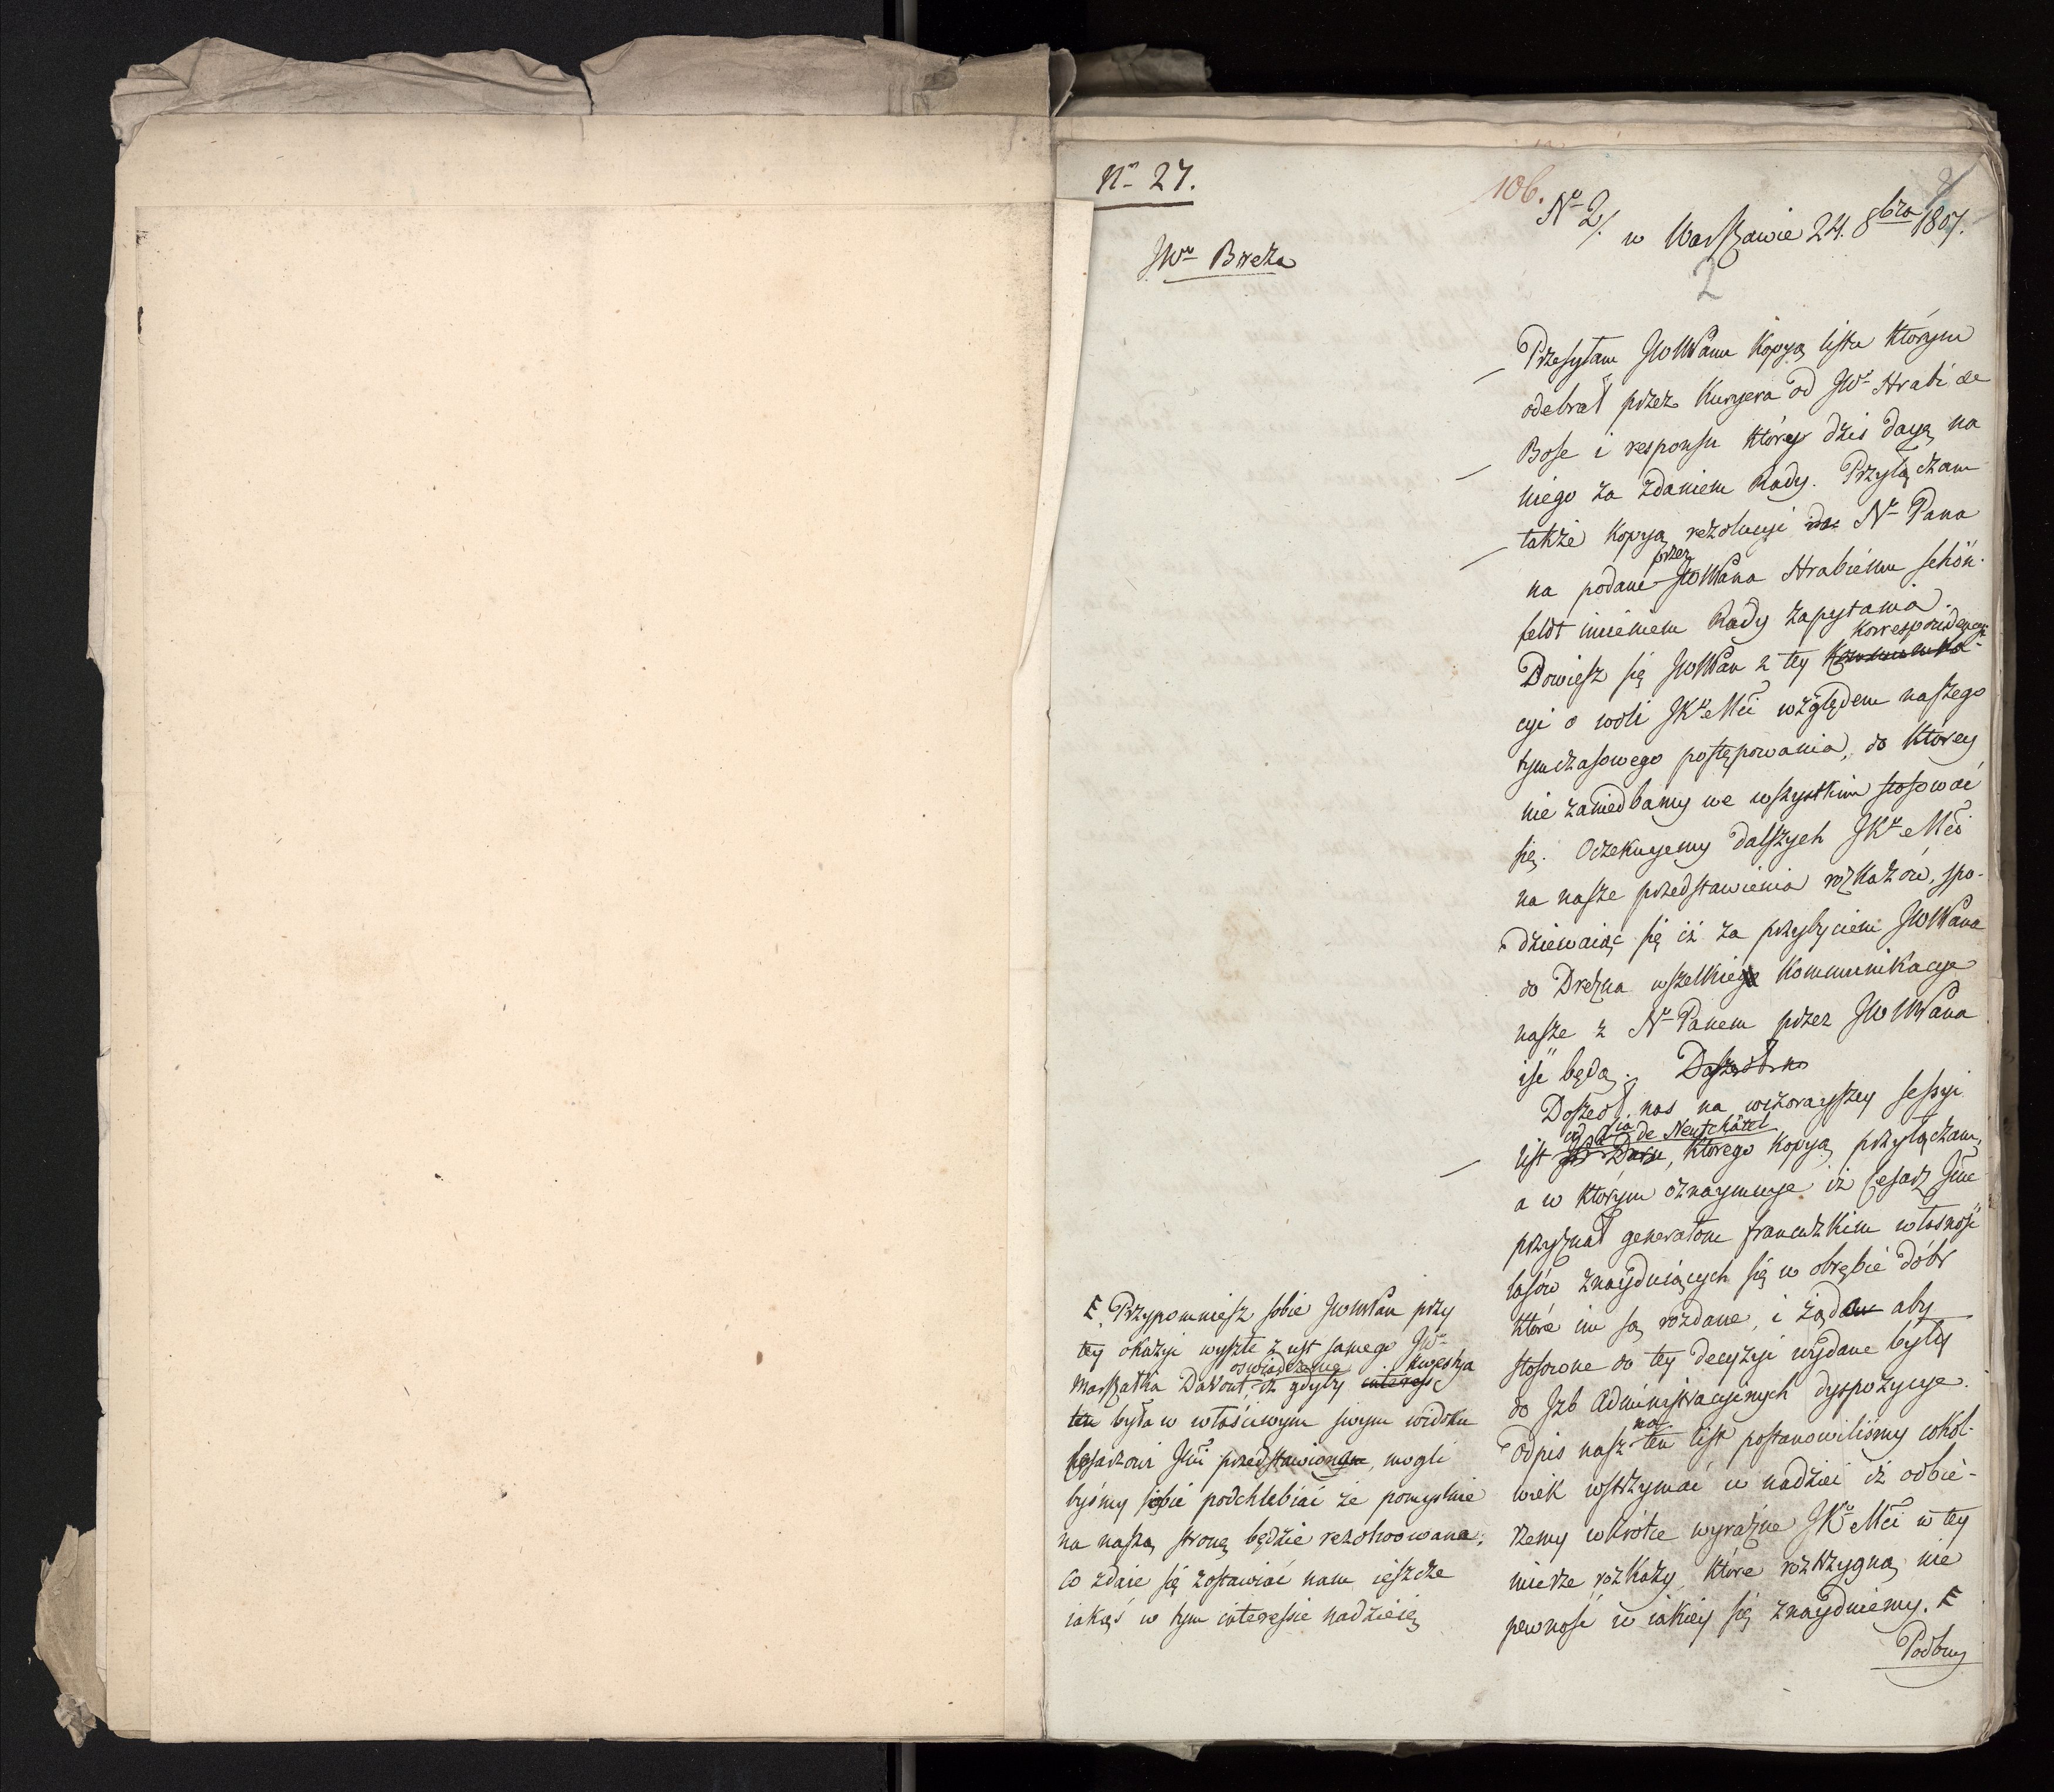 Nro 27.
106.
No 2/. w Warszawie 24. 8bra 1807.
2
JWu Breza
Przesyłam JWWPanu kopyą listu którym
odebrał przez Kuryera od JWo Hrabi de
Bose i responsu który dziś daye na
niego za zdaniem Rady. Przyłączam
także kopyą rezolucyi No Pana
przez
na podane JWWPana Hrabiemu Schön-
feldt imieniem Rady zapytania.
Korrespondency
Dowiesz się JWWPan z tey
cyi o woli JKr Mci względem naszego
tymczasowego postępowania, do ktorey
nie zaniedbamy we wszystkim stosować
się. Oczekuyemy dalszych JKr Mci
na nasze przedstawienia rozkazów, spo-
dziewaiąc się iż za przybyciem JWWPana
do Drezna wszelkie kommunikacye
nasze z No Panem przez JWWPana
iść będą. Doszedł nas
Doszedł nas na wczorayszey sessyi
od Xia de Neufchâtel
list Daru, ktorego kopyą przyłączam,
a w którym oznaymuye iż Cesarz Jmc
przyznał generałom francuzkim własność
lasów znayduiących się w obrębie dóbr
które im są rozdane, i żąda aby
stosowne do tey decyzyi wydane były
do Jzb Administracyinych dyspozycye.
na
Odpis nasz ten list postanowiliśmy cokol-
wiek wstrzymać w nadziei iż odbie-
rzemy wkrótce wyraźne JKr Mci w tey
mierze rozkazy, które rozstrzygną nie
pewność w iakiey się znayduiemy. F
Podbny
F. Przypomniesz sobie JWWPan przy
tey okazyi wyszłe z ust samego JWo
oswiadczenie kwestya
Marszałka Davout, iż gdyby interess
ten była w właściwym swym widoku
Cesarzowi Jmci przedstawiona, mogli
byśmy sobie podchlebiać że pomyślnie
na naszą stronę będzie rezolwowana;
co zdaie się zostawiać nam ieszcze
iakąś w tym interessie nadzieię